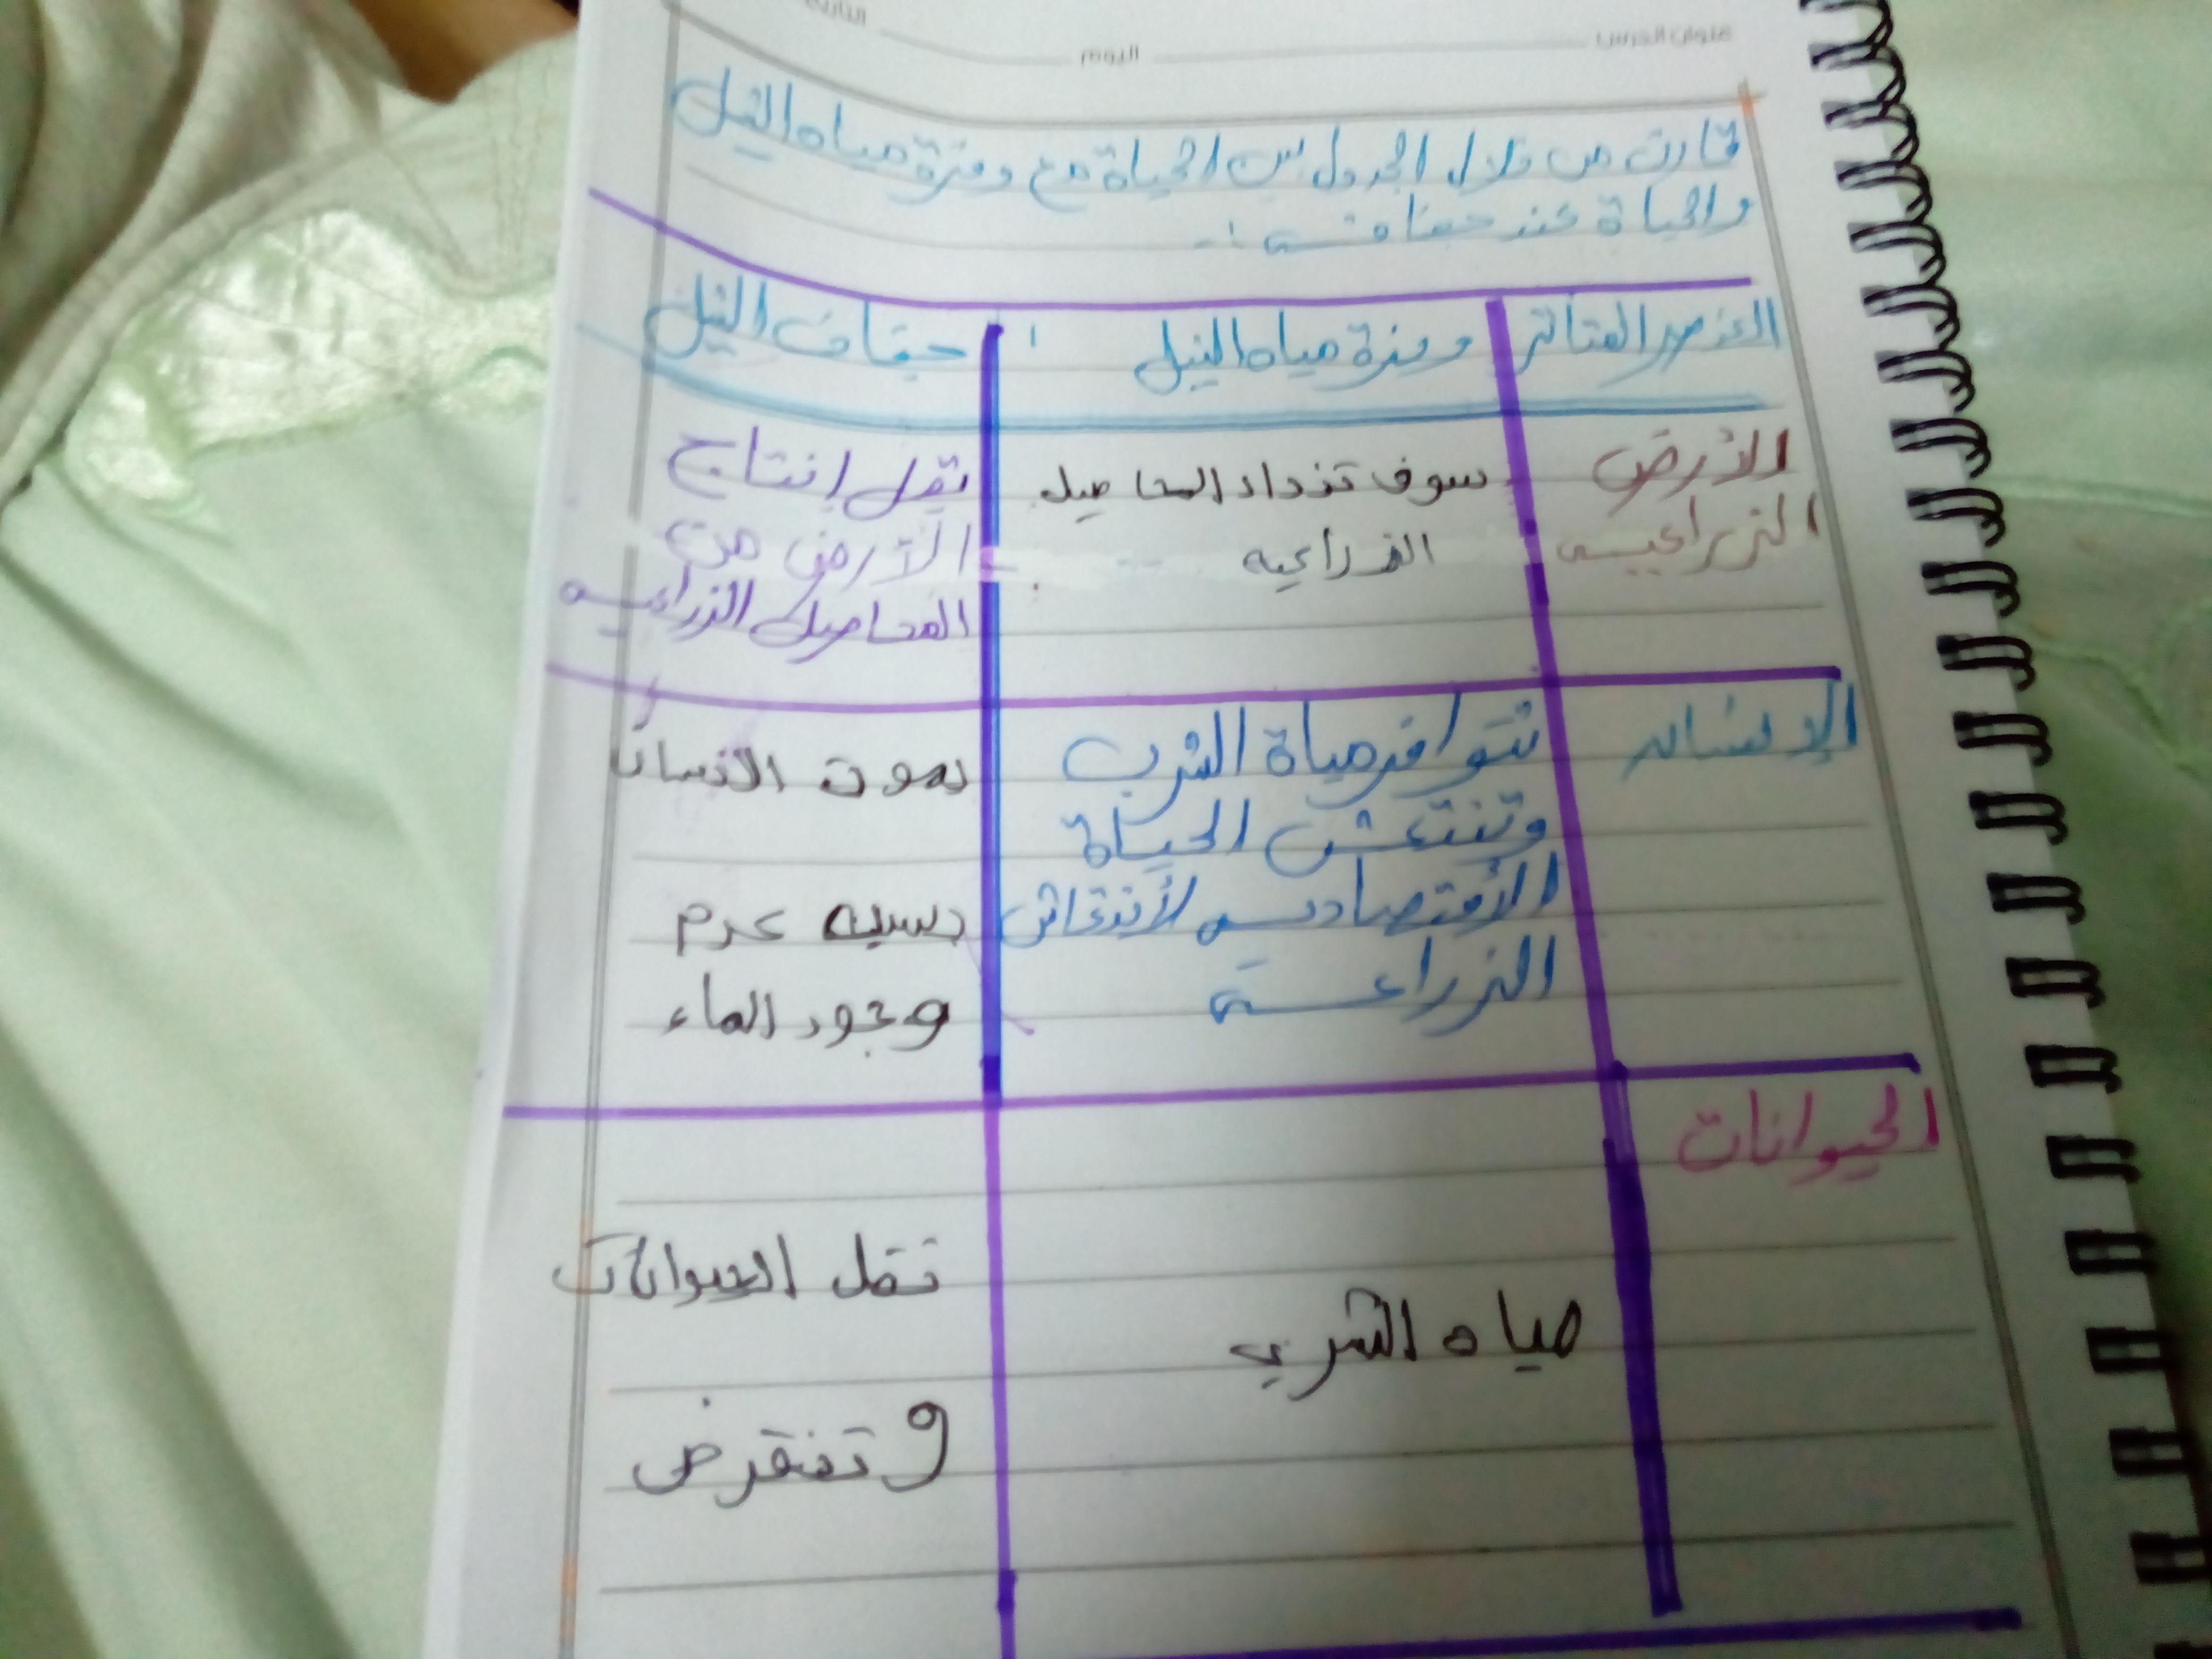 عنوان الدرس اليوم التاريخ
قارن من خلال الجدول بين الحياة مع وفرة مياه النيل
والحياة عند جفافه :-
العنصر المتأثر وفرة مياه النيل جفاف النيل
الأرض سوف تزداد المحاصيل تقل إنتاج
الزراعيه الزراعيه الأرض من
المحاصيل الزراعيه
الإنسان تتوافر مياة الشرب يموت الانسان
وتنتعش الحياة
الأقتصاديه لأنتعاش بسبب عدم
الزراعة وجود الماء
الحيوانات
مياه الشرب تقل الحيوانات
وتنقرض